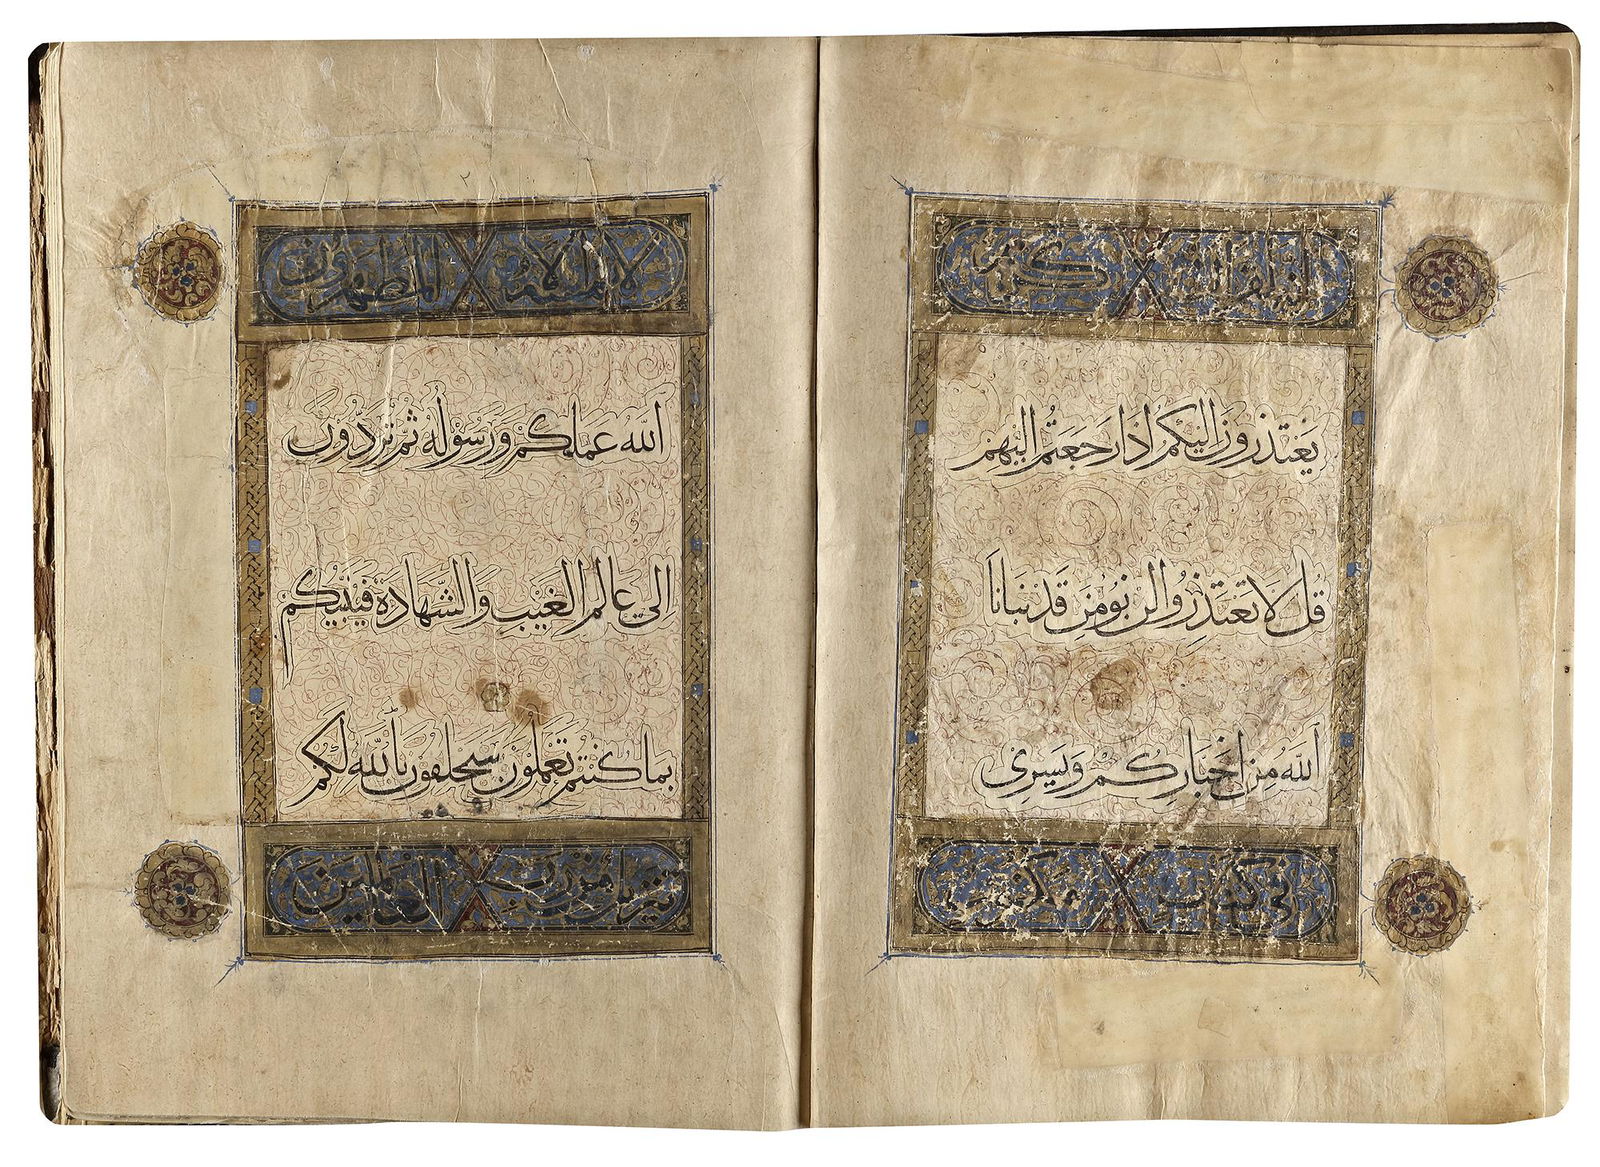 انه لقران كريم
يَعتَذرُونَ اِلَيكُم اِذا رَجَعتُم اِلَيهِم
قُل لا تَعتَذِرُوا لَن نُومِنَ قَد نَبّانَا
اَللّهُ مِن اَخبَارِكُم وَسَيَرى
في كتاب مكنون
لا يمسه الا المطهرون
اَللّهُ عَمَلَكُم وَرَسُولُه ثُمَّ تُرَدُّونَ
اِلى عَالِم الغَيبِ وَالشَّهَادَةِ فَيُنَبِّيُكُم
بِمَا كُنتُم تَعمَلُونَ سَيَحلِفُونَ بِاللّهِ لَكُم
تنزيل من رب العالمين